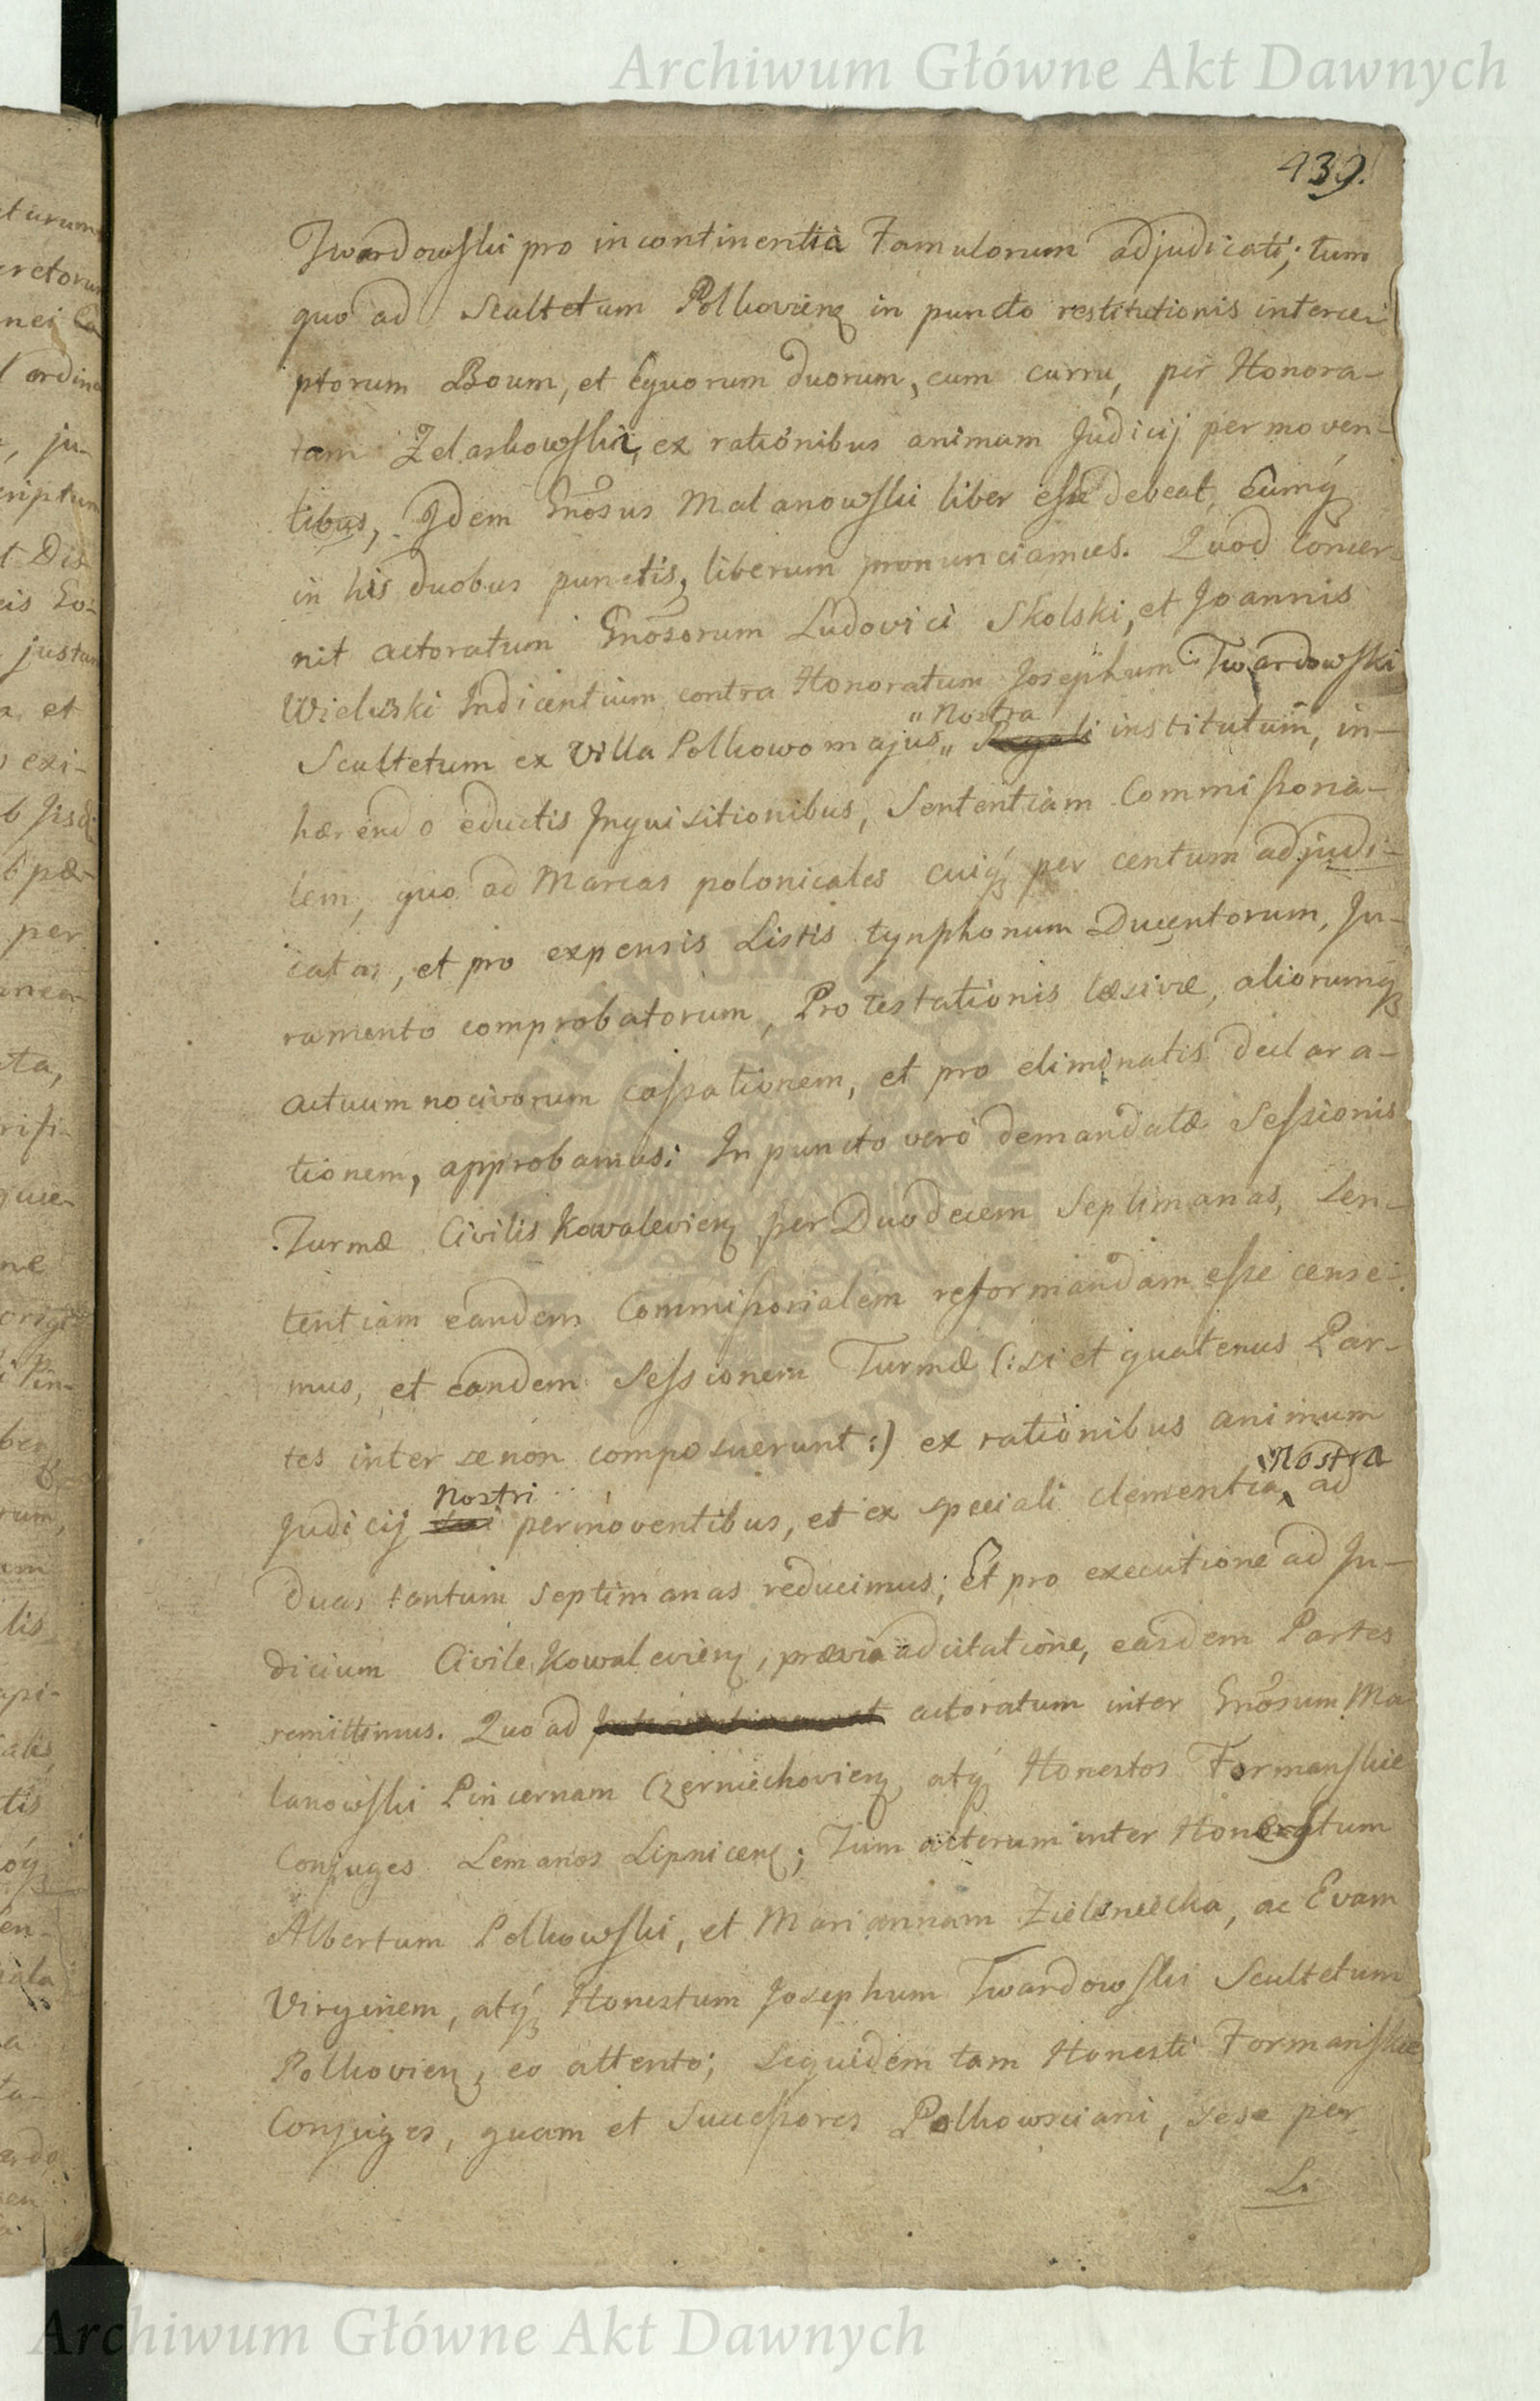 Archiwum Główne Akt Dawnych
439.
Twardowski pro incontinentia Famulorum adjudicati; tum
quo ad Scultetum Polkovien in puncto restitutionis interce-
ptorum Boum, et Equorum duorum, cum curru, per Honora-
tam Zelaskowski, ex rationibus animum Judicij permoven-
tibus, Idem Gnosus Malanowski liber esse debeat, Eumq
in his duobus punctis, liberum pronunciamus. Quod concer-
nit actoratum Gnosorum Ludovici Skolski, et Joannis
Wieluński Indicentium contra Honoratum Josephum Twardowski
Scultetum ex Villa Polkowo majus „ Nostra „ Regali institutum, in-
hærendo eductis Inquisitionibus, Sententiam Commissoria-
lem, quo ad Marcas polonicales cuiq per centum adjudi-
catas, et pro expensis Listis tynphonum Ducentorum, Ju-
ramento comprobatorum, Protestationis læsivæ, aliorumq
actuum nocivorum cassationem, et pro eliminatis declara-
tionem, approbamus: In puncto vero demandatæ Sessionis
Turmæ Civilis Kowalevien per Duodecem Septimanas, Sen-
tentiam eandem Commissorialem reformandam esse cense-
mus, et eandem Sessionem Turmæ (: si et quatenus Par-
tes inter se non composuerunt :) ex rationibus animum
Judicij Nostri permoventibus, et ex speciali clementia Nostra ad
duas tantum septimanas reducimus; Et pro executione ad Ju-
dicium Civile Kowalevien, prævia adcitatione, easdem Partes
remittimus. Quo ad actoratum inter Gnosum Ma
lanowski Pincernam Czerniechovien atq Honestos Formanskie
Conjuges Lemanos Lipnicen; Tum acterum inter Honestum
Albertum Polkowski, et Mariannam Zieleniecka, ac Evam
Virginem, atq Honestum Josephum Twardowski Scultetum
Polkovien, eo attento; siquidem tam Honesti Formanskie
Conjuges, quam et Successores Polkowsciani, sese per
Li
Archiwum Główne Akt Dawnych